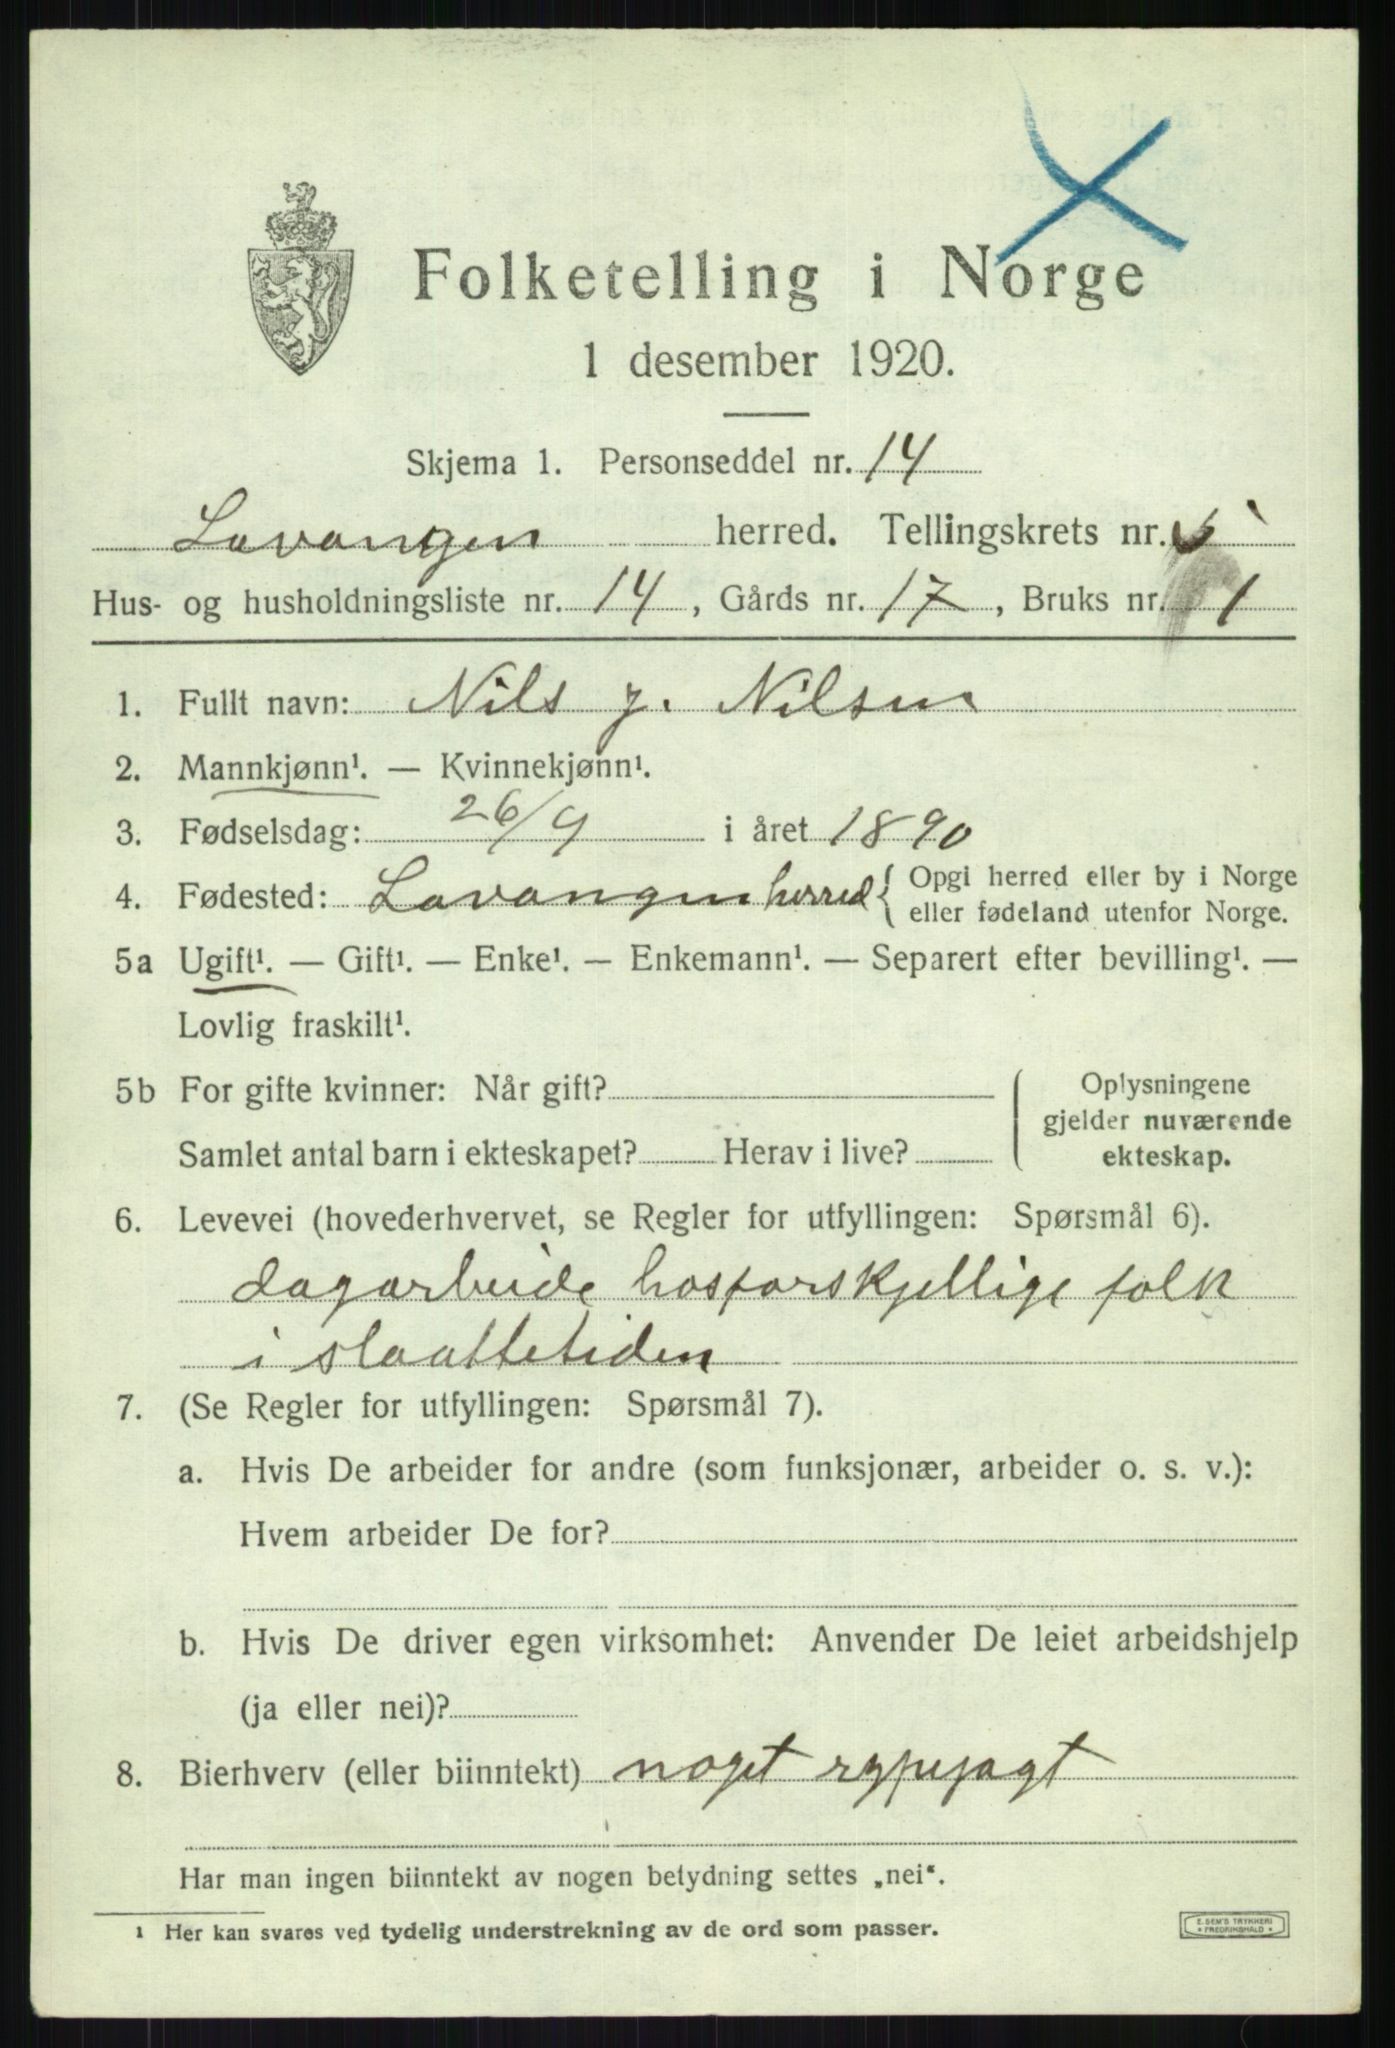 Folketelling i Norge
1 desember 1920.
Skjema 1. Personseddel nr. 14
Lavangen herred. Tellingskrets nr. 5
Hus- og husholdningsliste nr. 14, Gårds nr. 17, Bruks nr. 1
1. Fullt navn: Nils J. Nilsen
2. Mannkjønn¹. — Kvinnekjønn¹.
3. Fødselsdag: 26/9 i året 1890
4. Fødested: Lavangen herred { Opgi herred eller by i Norge
eller fødeland utenfor Norge.
5a Ugift¹. — Gift¹. — Enke¹. — Enkemann¹. — Separert efter bevilling¹. —
Lovlig fraskilt¹.
5b For gifte kvinner: Når gift?
Samlet antal barn i ekteskapet? Herav i live?
Oplysningene
gjelder nuværende
ekteskap.
6. Levevei (hovederhvervet, se Regler for utfyllingen: Spørsmål 6).
dagarbeide hosforskjellige folk
i slaattetiden
7. (Se Regler for utfyllingen: Spørsmål 7).
a. Hvis De arbeider for andre (som funksjonær, arbeider o. s. v.):
Hvem arbeider De for?
b. Hvis De driver egen virksomhet: Anvender De leiet arbeidshjelp
(ja eller nei)?
8. Bierhverv (eller biinntekt) noget rypejagt
Har man ingen biinntekt av nogen betydning settes „nei“.
¹ Her kan svares ved tydelig understrekning av de ord som passer.
E. SEM'S TRYKKERI
• FREDRIKSHALD •